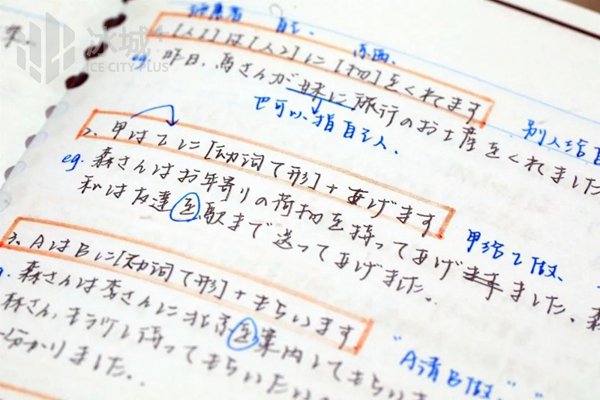 冰城+
ICE CITY PLUS
东西、
[人1]は[人2]に[物]をくれます
eg. 昨日、馬さんが妹に旅行のお土産をくれました
也可以指自己人、
別人给自
2、甲は乙に[动词て形]+あげます
eg. 森さんはお年寄りの荷物を持ってあげました、森
私は友達を駅まで送ってあげました。
甲给乙做、
3、AはBに[动词て形]+もらいます
森さんは李さんに北京を案内してもらいま
林さん、もう少し待ってもらいたい
分かりました。
"A请B做、"